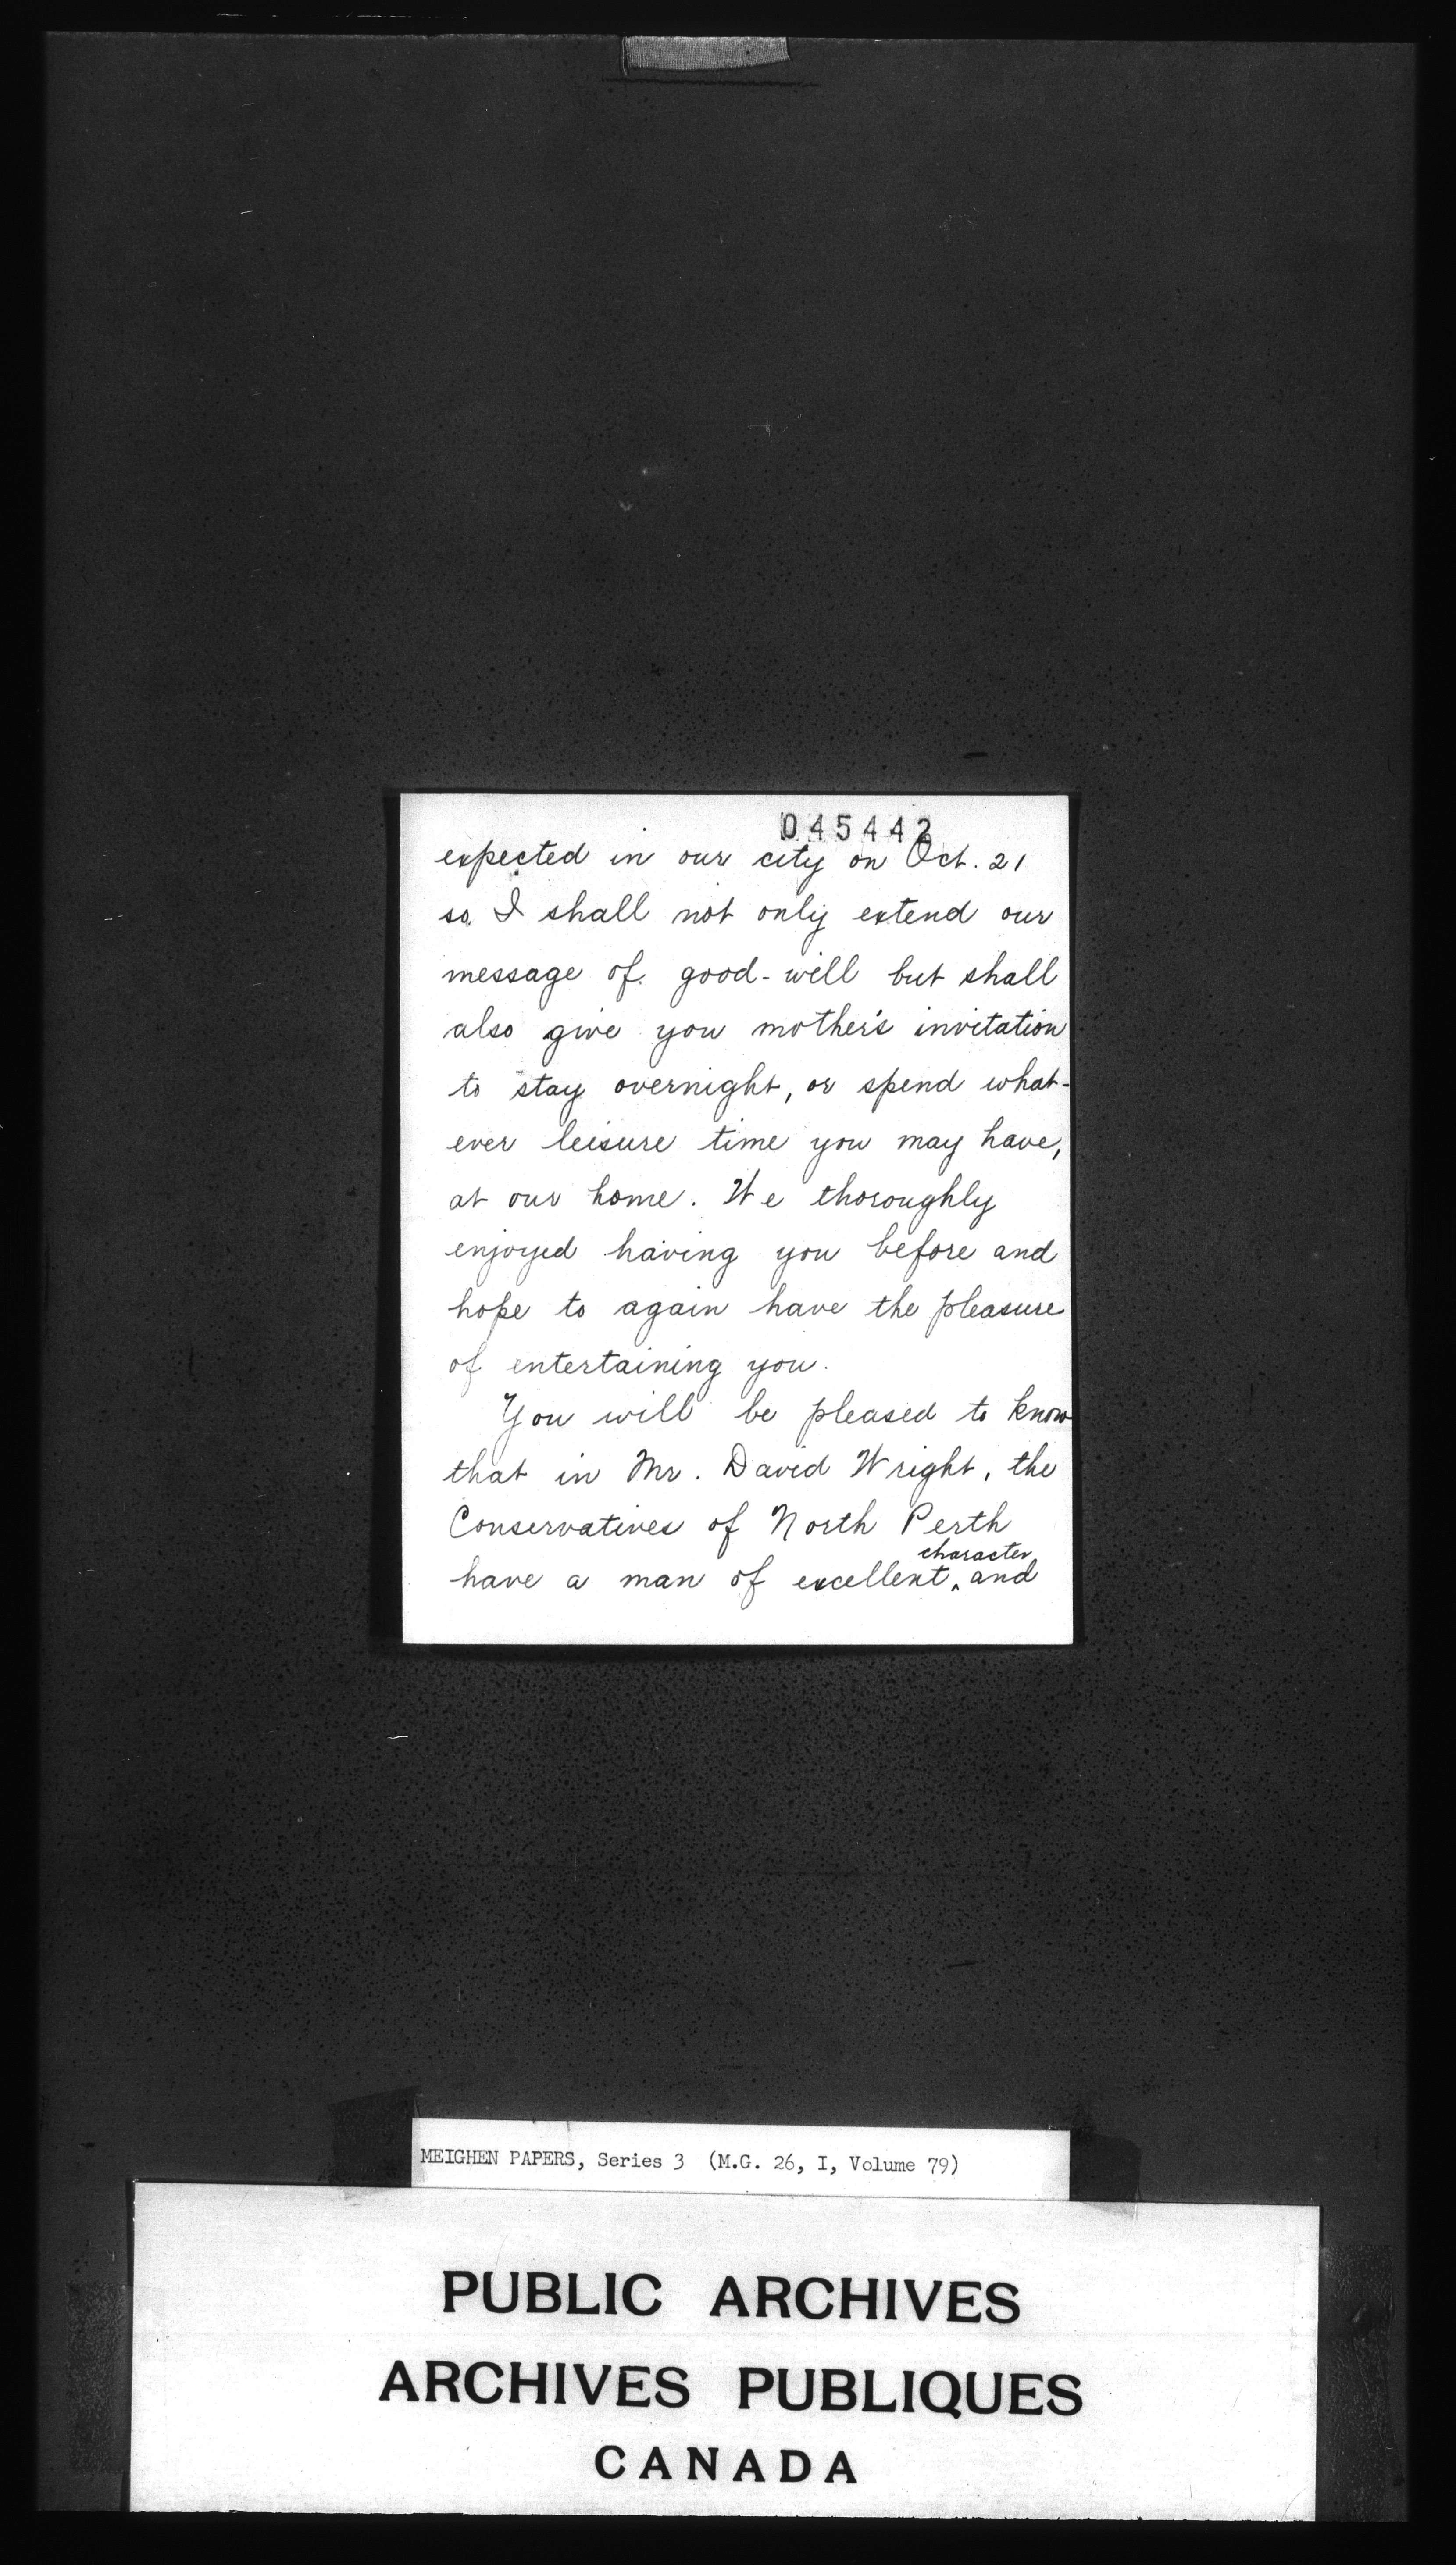 045442
expected in our city on Oct. 21
so I shall not only extend our
message of good-will but shall
also give you mother's invitation
to stay overnight, or spend what-
ever leisure time you may have,
at our home. We thoroughly
enjoyed having you before and
hope to again have the pleasure
of entertaining you.
You will be pleased to know
that in Mr. David Wright, the
Conservatives of North Perth
character
have a man of excellent, and
MEIGHEN PAPERS, Series 3 (M.G. 26, I, Volume 79)
PUBLIC ARCHIVES
ARCHIVES PUBLIQUES
CANADA